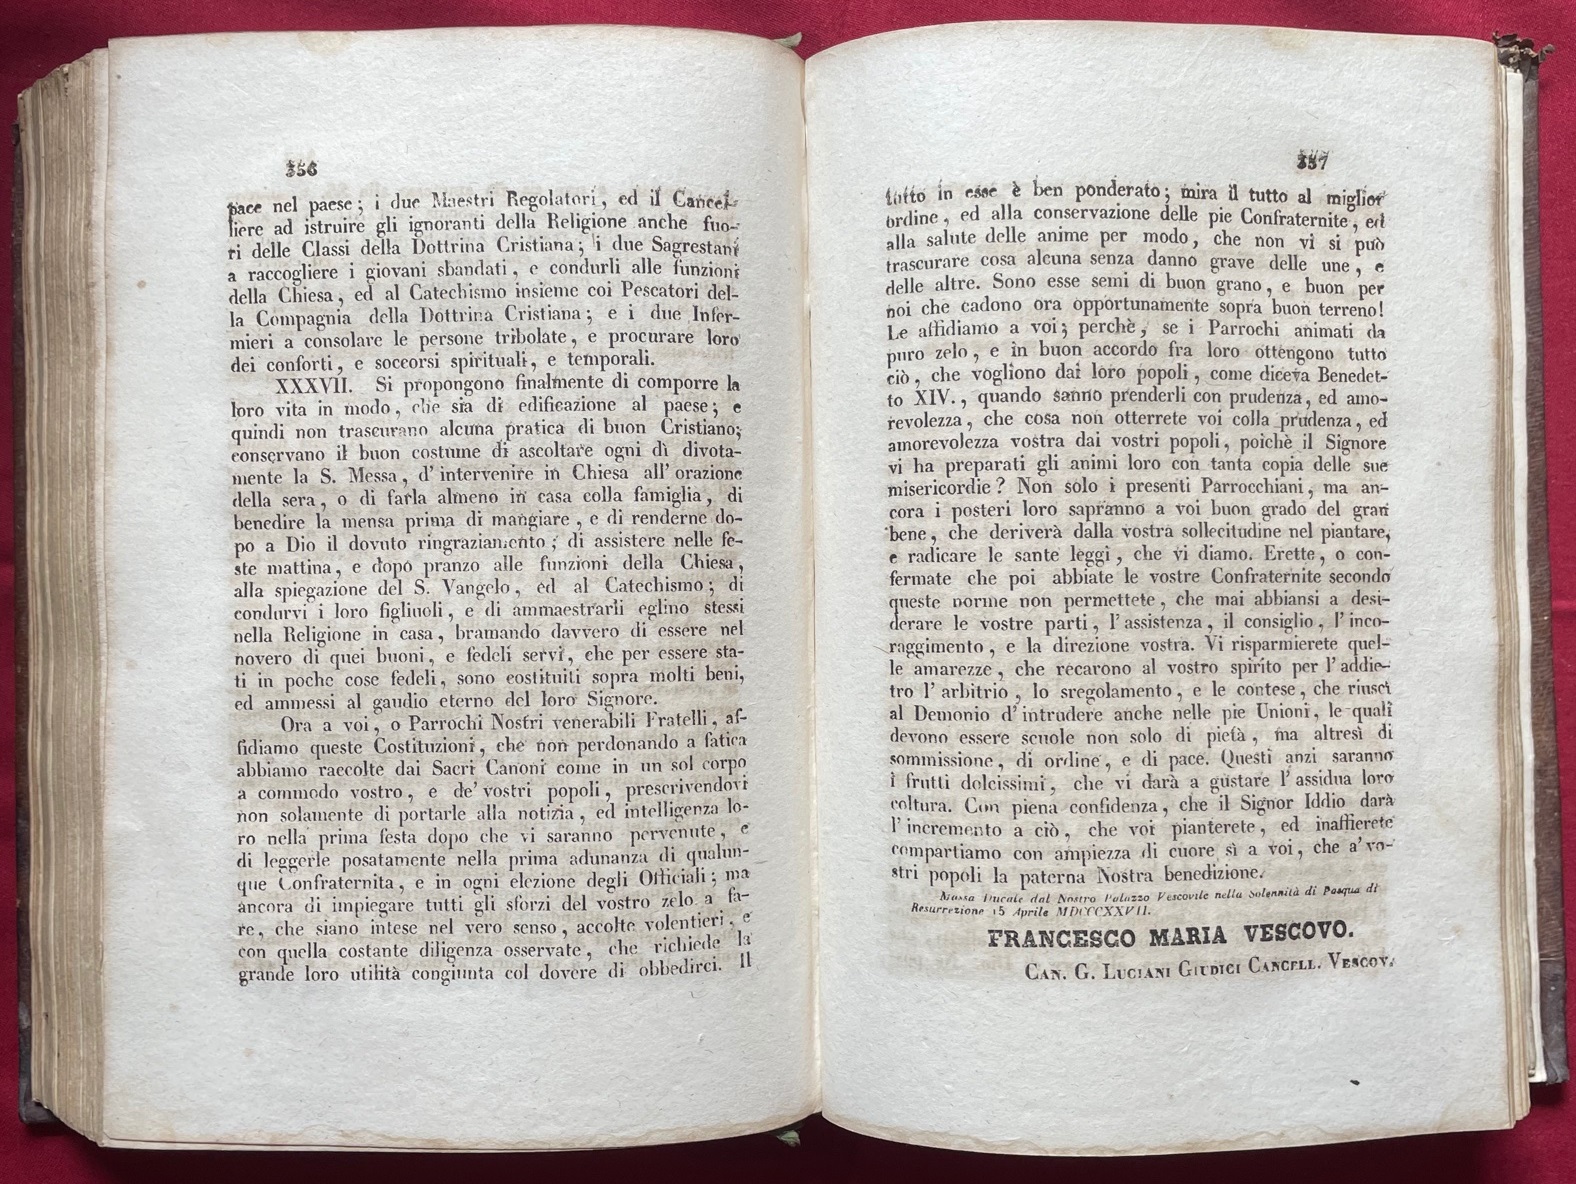 356
pace nel paese; i due Maestri Regolatori, ed il Cancel-
liere ad istruire gli ignoranti della Religione anche fuo-
ri delle Classi della Dottrina Cristiana; i due Sagrestani
a raccogliere i giovani sbandati, e condurli alle funzioni
della Chiesa, ed al Catechismo insieme coi Pescatori del-
la Compagnia della Dottrina Cristiana; e i due Infer-
mieri a consolare le persone tribolate, e procurare loro
dei conforti, e soccorsi spirituali, e temporali.
XXXVII. Si propongono finalmente di comporre la
loro vita in modo, che sia di edificazione al paese; e
quindi non trascurano alcuna pratica di buon Cristiano;
conservano il buon costume di ascoltare ogni dì divota-
mente la S. Messa, d'intervenire in Chiesa all'orazione
della sera, o di farla almeno in casa colla famiglia, di
benedire la mensa prima di mangiare, e di renderne do-
po a Dio il dovuto ringraziamento; di assistere nelle fe-
ste mattina, e dopo pranzo alle funzioni della Chiesa,
alla spiegazione del S. Vangelo, ed al Catechismo; di
condurvi i loro figliuoli, e di ammaestrarli eglino stessi
nella Religione in casa, bramando davvero di essere nel
novero di quei buoni, e fedeli servi, che per essere sta-
ti in poche cose fedeli, sono costituiti sopra molti beni,
ed ammessi al gaudio eterno del loro Signore.
Ora a voi, o Parrochi Nostri venerabili Fratelli, af-
fidiamo queste Costituzioni, che non perdonando a fatica
abbiamo raccolte dai Sacri Canoni come in un sol corpo
a commodo vostro, e de' vostri popoli, prescrivendovi
non solamente di portarle alla notizia, ed intelligenza lo-
ro nella prima festa dopo che vi saranno pervenute, e
di leggerle posatamente nella prima adunanza di qualun-
que Confraternita, e in ogni elezione degli Officiali; ma
ancora di impiegare tutti gli sforzi del vostro zelo a fa-
re, che siano intese nel vero senso, accolte volentieri, e
con quella costante diligenza osservate, che richiede la
grande loro utilità congiunta col dovere di obbedirci. Il
357
tutto in esse è ben ponderato; mira il tutto al miglior
ordine, ed alla conservazione delle pie Confraternite, ed
alla salute delle anime per modo, che non vi si può
trascurare cosa alcuna senza danno grave delle une, e
delle altre. Sono esse semi di buon grano, e buon per
noi che cadono ora opportunamente sopra buon terreno!
Le affidiamo a voi; perchè, se i Parrochi animati da
puro zelo, e in buon accordo fra loro ottengono tutto
ciò, che vogliono dai loro popoli, come diceva Benedet-
to XIV., quando sanno prenderli con prudenza, ed amo-
revolezza, che cosa non otterrete voi colla prudenza, ed
amorevolezza vostra dai vostri popoli, poichè il Signore
vi ha preparati gli animi loro con tanta copia delle sue
misericordie? Non solo i presenti Parrocchiani, ma an-
cora i posteri loro sapranno a voi buon grado del gran
bene, che deriverà dalla vostra sollecitudine nel piantare,
e radicare le sante leggi, che vi diamo. Erette, o con-
fermate che poi abbiate le vostre Confraternite secondo
queste norme non permettete, che mai abbiansi a desi-
derare le vostre parti, l'assistenza, il consiglio, l'inco-
raggimento, e la direzione vostra. Vi risparmierete quel-
le amarezze, che recarono al vostro spirito per l'addie-
tro l'arbitrio, lo sregolamento, e le contese, che riuscì
al Demonio d'intrudere anche nelle pie Unioni, le quali
devono essere scuole non solo di pietà, ma altresì di
sommissione, di ordine, e di pace. Questi anzi saranno
i frutti dolcissimi, che vi darà a gustare l'assidua loro
coltura. Con piena confidenza, che il Signor Iddio darà
l'incremento a ciò, che voi pianterete, ed inaffierete
compartiamo con ampiezza di cuore sì a voi, che a' vo-
stri popoli la paterna Nostra benedizione.
Massa Ducale dal Nostro Palazzo Vescovile nella Solennità di Pasqua di
Resurrezione 15 Aprile MDCCCXXVII.
FRANCESCO MARIA VESCOVO.
CAN. G. LUCIANI GIUDICI CANCELL. VESCOV.